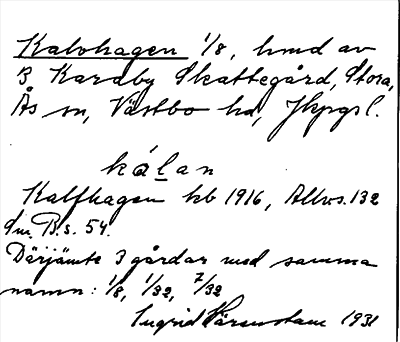 Kalvhagen 1/8, hmd av
B Karaby Skattegård, Stora,
Ås sn, Västbo hd, Jkpgs l.
kálan
Kalfhagen kb 1916, Allvs. 132
Sm. B. s. 54.
Därjämte 3 gårdar med samma
namn: 1/8, 1/32, 7/32
Ingrid Härenstam 1931